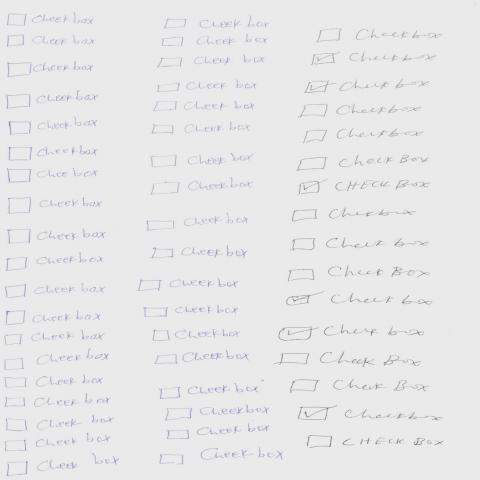 Check box
Check box
Check box
Check box
Check box
Check box
Chec box
Check box
Check box
Check box
Check box
Check box
Check box
Check box
Check box
Check box
Check box
Check box
Check box
Check box
Check box
Check box
Check box
Check box
Check box
Check box
Check box
Check box
Check box
Check box
Check box
Check box
Check box
Check box
Check box
Check box
Check box
Checkbox
Checkbox
Checkbox
Checkbox
Checkbox
Check Box
CHECK Box
Checkbox
Check box
Check Box
Check box
Check box
Check Box
Check Box
Checkbox
CHECK Box